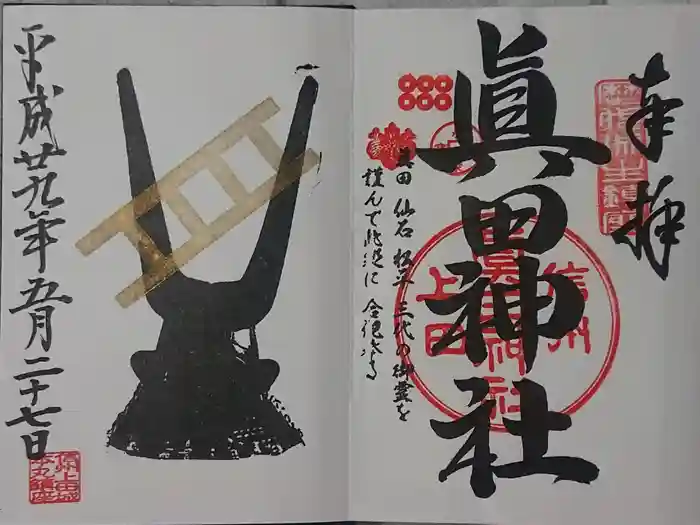 奉拝
眞田神社
信州
上田
眞田神社
真田 仙石 松平 三代の御霊を
謹んで此処に合祀する
平成廿九年五月二十七日